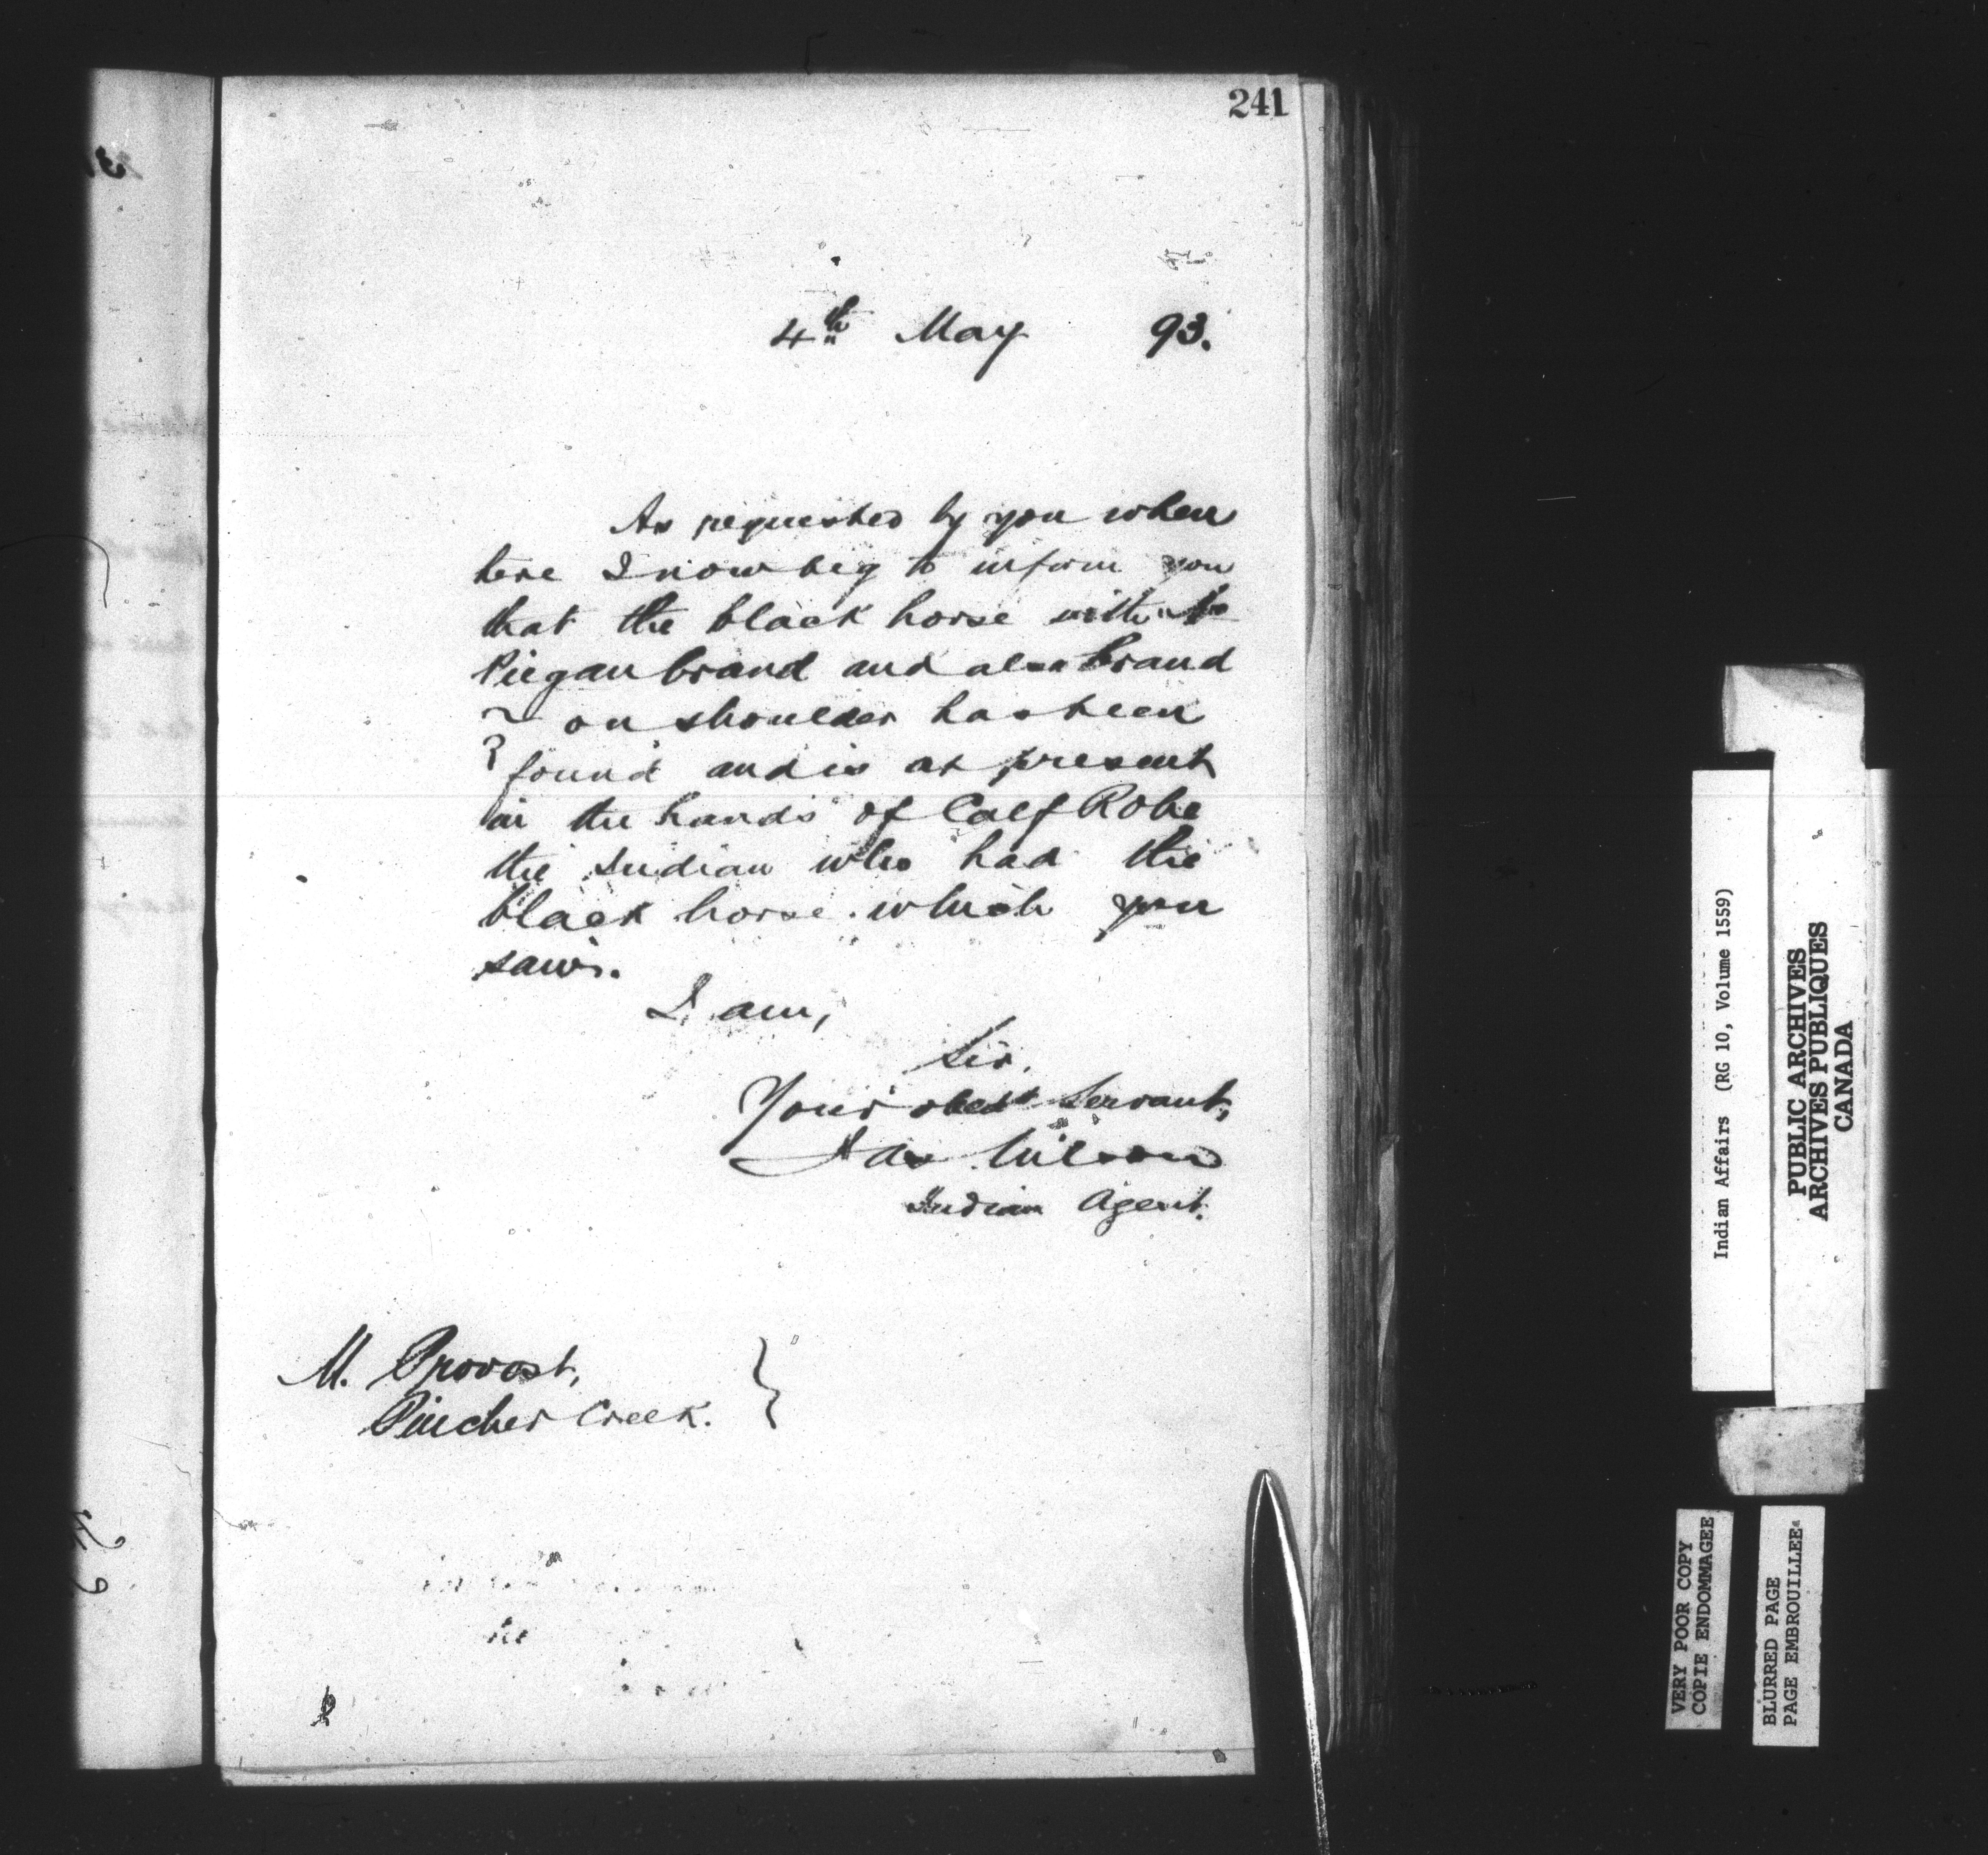 241
4th May 93.
As requested by you when
here I now beg to inform you
that the black horse with
Piegan brand and also brand
on shoulder has been
found and is at present
in the hands of Calf Robe
the Indian who had the
black horse which you
saw.
I am,
Sir,
Your obedt Servant,
Jas Wilson
Indian Agent.
M. Provost,
Pincher Creek.
Indian Affairs (RG 10, Volume 1559)
PUBLIC ARCHIVES
ARCHIVES PUBLIQUES
CANADA
VERY POOR COPY
COPIE ENDOMMAGEE
BLURRED PAGE
PAGE EMBROUILLEE